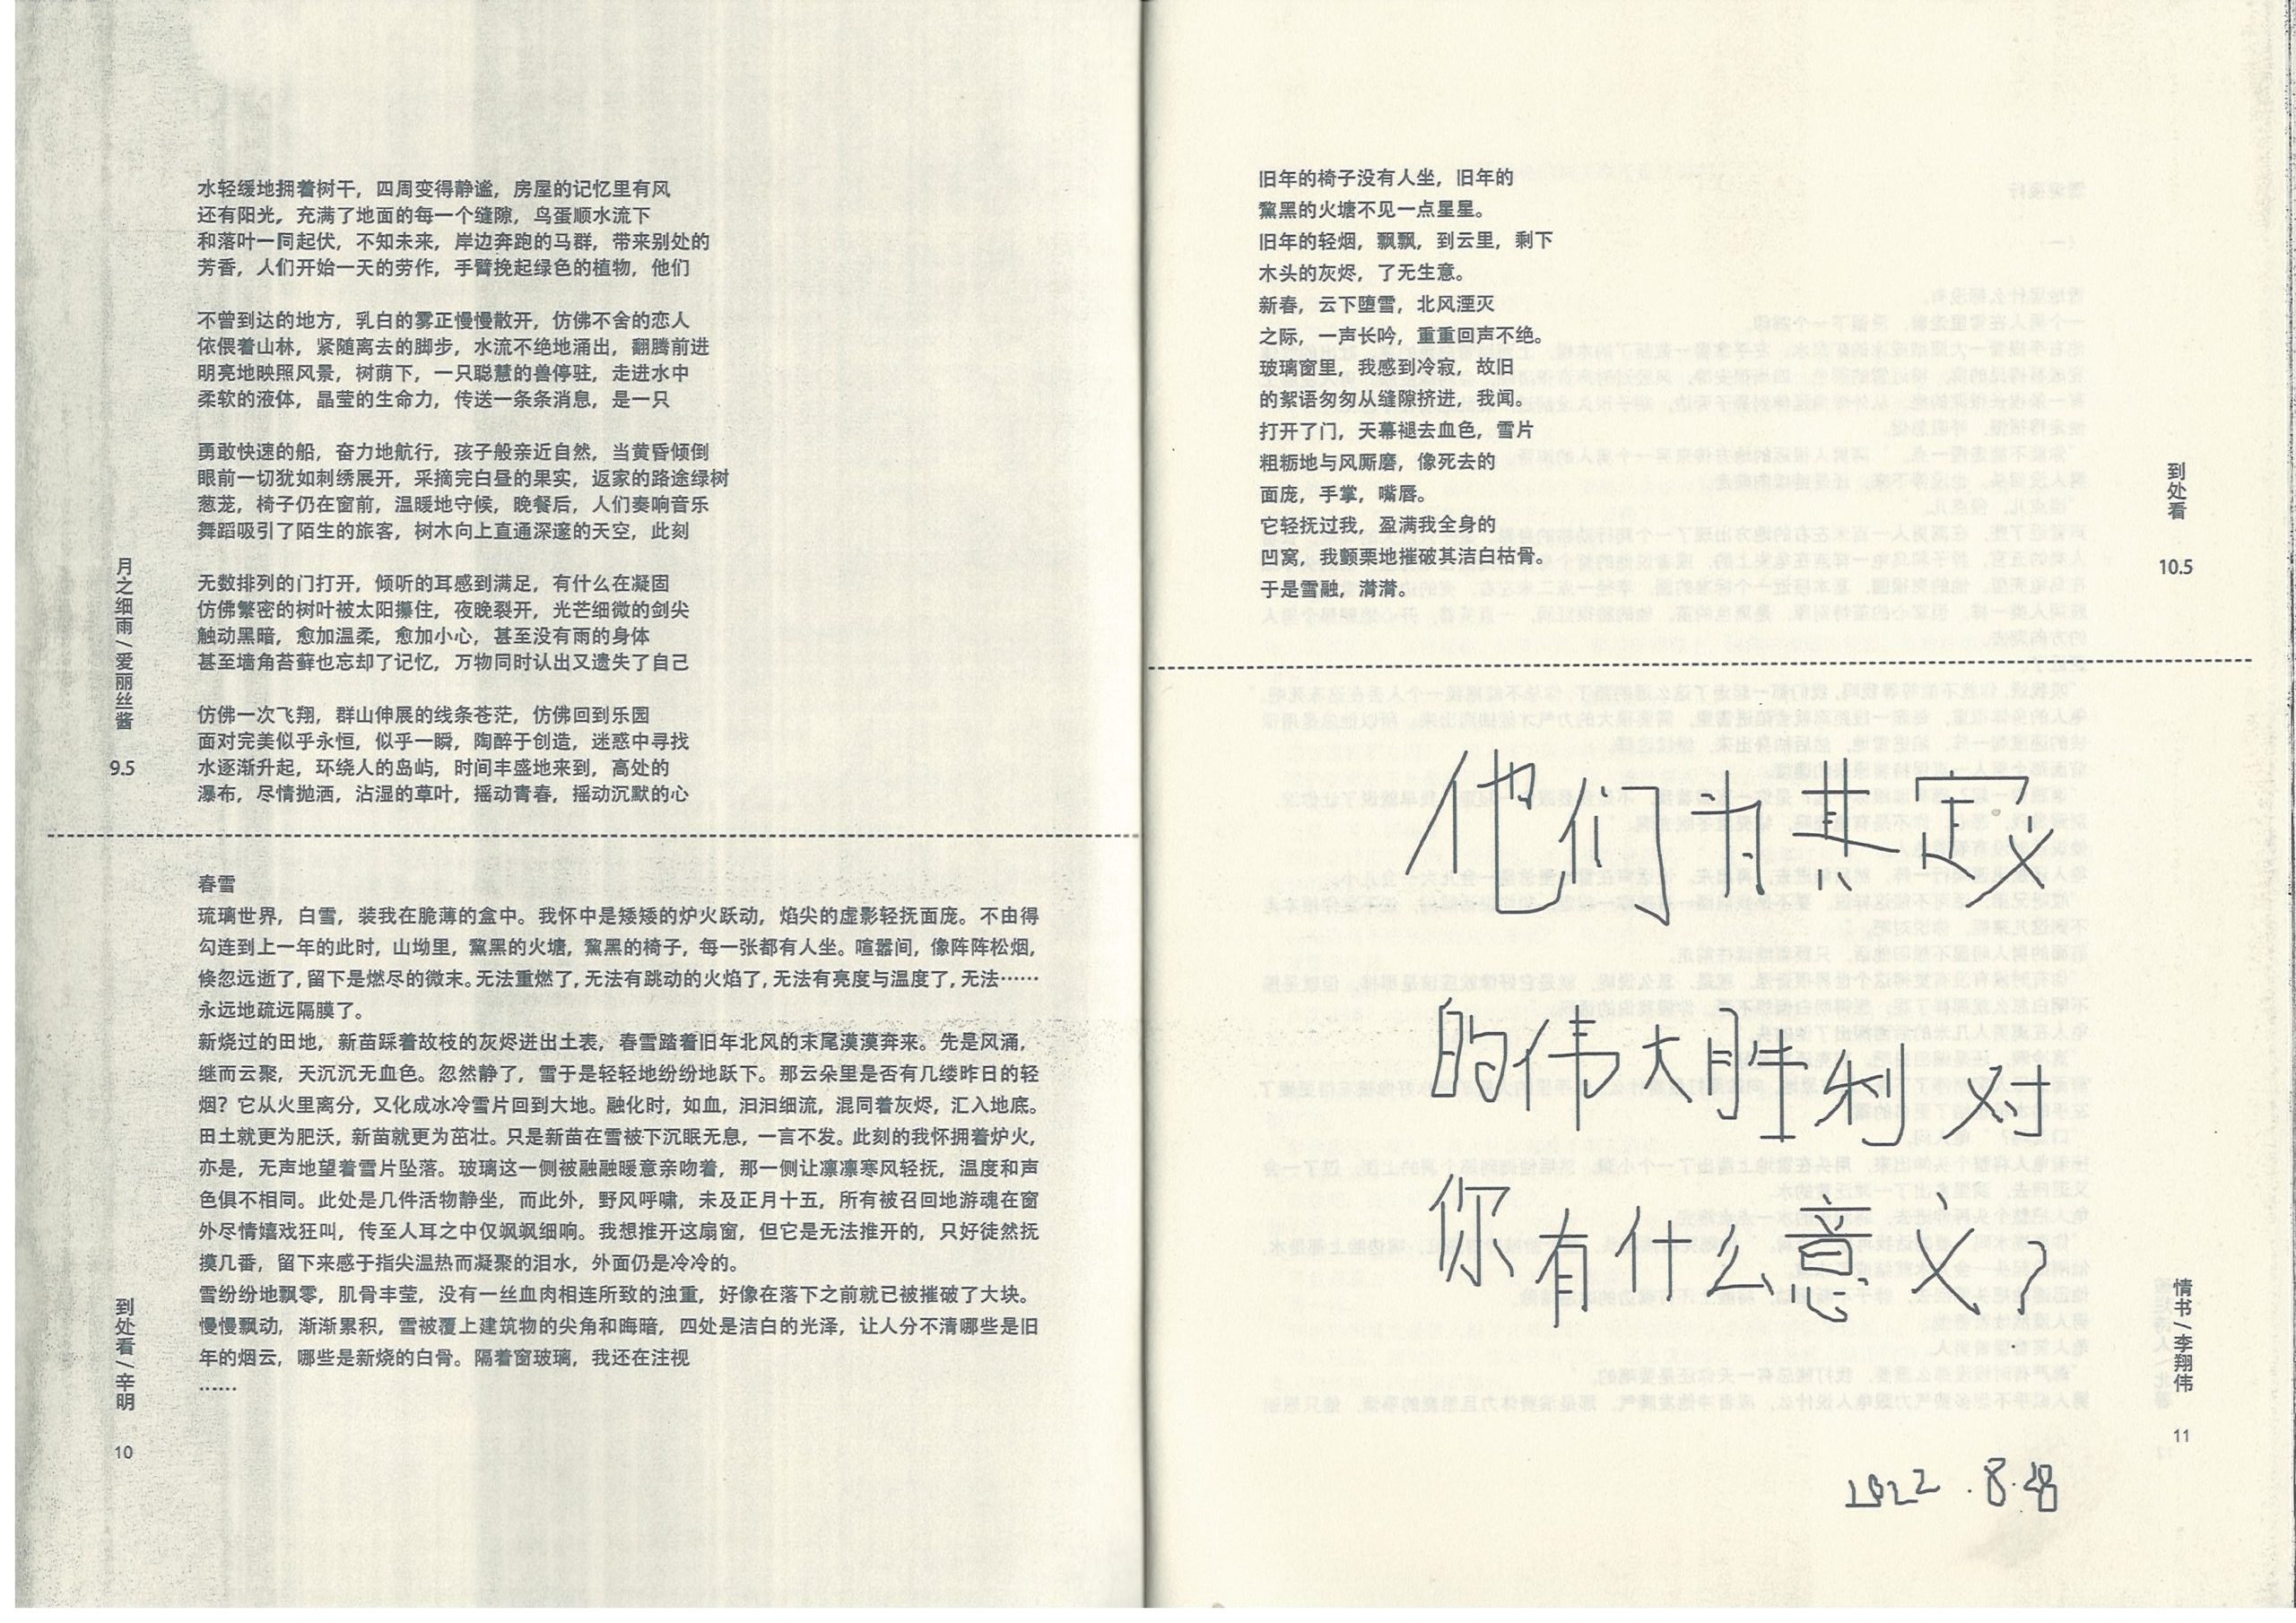 水轻缓地拥着树干，四周变得静谧，房屋的记忆里有风
还有阳光，充满了地面的每一个缝隙，鸟蛋顺水流下
和落叶一同起伏，不知未来，岸边奔跑的马群，带来别处的
芳香，人们开始一天的劳作，手臂挽起绿色的植物，他们
不曾到达的地方，乳白的雾正慢慢散开，仿佛不舍的恋人
依偎着山林，紧随离去的脚步，水流不绝地涌出，翻腾前进
明亮地映照风景，树荫下，一只聪慧的兽停驻，走进水中
柔软的液体，晶莹的生命力，传送一条条消息，是一只
勇敢快速的船，奋力地航行，孩子般亲近自然，当黄昏倾倒
眼前一切犹如刺绣展开，采摘完白昼的果实，返家的路途绿树
葱茏，椅子仍在窗前，温暖地守候，晚餐后，人们奏响音乐
舞蹈吸引了陌生的旅客，树木向上直通深邃的天空，此刻
无数排列的门打开，倾听的耳感到满足，有什么在凝固
仿佛繁密的树叶被太阳攥住，夜晚裂开，光芒细微的剑尖
触动黑暗，愈加温柔，愈加小心，甚至没有雨的身体
甚至墙角苔藓也忘却了记忆，万物同时认出又遗失了自己
仿佛一次飞翔，群山伸展的线条苍茫，仿佛回到乐园
面对完美似乎永恒，似乎一瞬，陶醉于创造，迷惑中寻找
水逐渐升起，环绕人的岛屿，时间丰盛地来到，高处的
瀑布，尽情抛洒，沾湿的草叶，摇动青春，摇动沉默的心
月之细雨/爱丽丝酱
9.5
春雪
琉璃世界，白雪，装我在脆薄的盒中。我怀中是矮矮的炉火跃动，焰尖的虚影轻抚面庞。不由得
勾连到上一年的此时，山坳里，黧黑的火塘，黧黑的椅子，每一张都有人坐。喧嚣间，像阵阵松烟，
倏忽远逝了，留下是燃尽的微末。无法重燃了，无法有跳动的火焰了，无法有亮度与温度了，无法……
永远地疏远隔膜了。
新烧过的田地，新苗踩着故枝的灰烬迸出土表，春雪踏着旧年北风的末尾漠漠奔来。先是风涌，
继而云聚，天沉沉无血色。忽然静了，雪于是轻轻地纷纷地跃下。那云朵里是否有几缕昨日的轻
烟？它从火里离分，又化成冰冷雪片回到大地。融化时，如血，汩汩细流，混同着灰烬，汇入地底。
田土就更为肥沃，新苗就更为茁壮。只是新苗在雪被下沉眠无息，一言不发。此刻的我怀拥着炉火，
亦是，无声地望着雪片坠落。玻璃这一侧被融融暖意亲吻着，那一侧让凛凛寒风轻抚，温度和声
色俱不相同。此处是几件活物静坐，而此外，野风呼啸，未及正月十五，所有被召回地游魂在窗
外尽情嬉戏狂叫，传至人耳之中仅飒飒细响。我想推开这扇窗，但它是无法推开的，只好徒然抚
摸几番，留下来感于指尖温热而凝聚的泪水，外面仍是冷冷的。
雪纷纷地飘零，肌骨丰莹，没有一丝血肉相连所致的浊重，好像在落下之前就已被摧破了大块。
慢慢飘动，渐渐累积，雪被覆上建筑物的尖角和晦暗，四处是洁白的光泽，让人分不清哪些是旧
年的烟云，哪些是新烧的白骨。隔着窗玻璃，我还在注视
……
到处看/辛明
10
旧年的椅子没有人坐，旧年的
黧黑的火塘不见一点星星。
旧年的轻烟，飘飘，到云里，剩下
木头的灰烬，了无生意。
新春，云下堕雪，北风湮灭
之际，一声长吟，重重回声不绝。
玻璃窗里，我感到冷寂，故旧
的絮语匆匆从缝隙挤进，我闻。
打开了门，天幕褪去血色，雪片
粗粝地与风厮磨，像死去的
面庞，手掌，嘴唇。
它轻抚过我，盈满我全身的
凹窝，我颤栗地摧破其洁白枯骨。
于是雪融，潸潸。
到处看
10.5
他们为其定义
的伟大胜利对
你有什么意义？
2022.8.28
情书/李翔伟
11